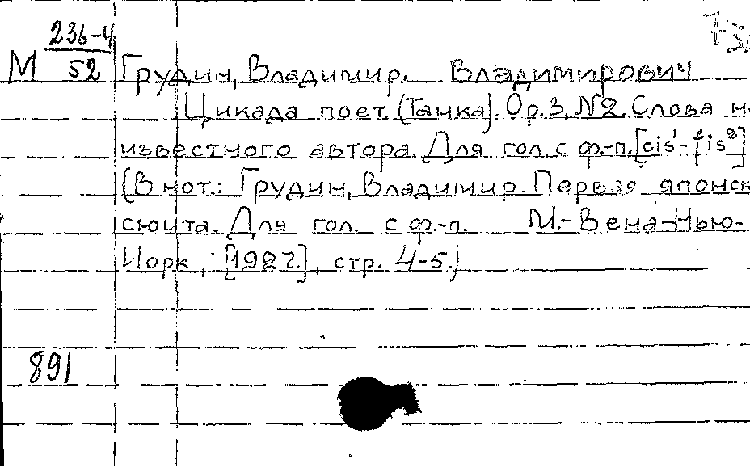 М 236-4/52
Грудин, Владимир. Владимирович
Цикада поет. (Танка). Ор.3, №2. Слова н
известного автора. Для гол. с ф-п. [cis¹-fis²]
(В нот.: Грудин, Владимир. Первая японск
сюита. Для гол. с ф-п. М.-Вена-Нью-
Йорк, [192?.], стр. 4-5.)
891